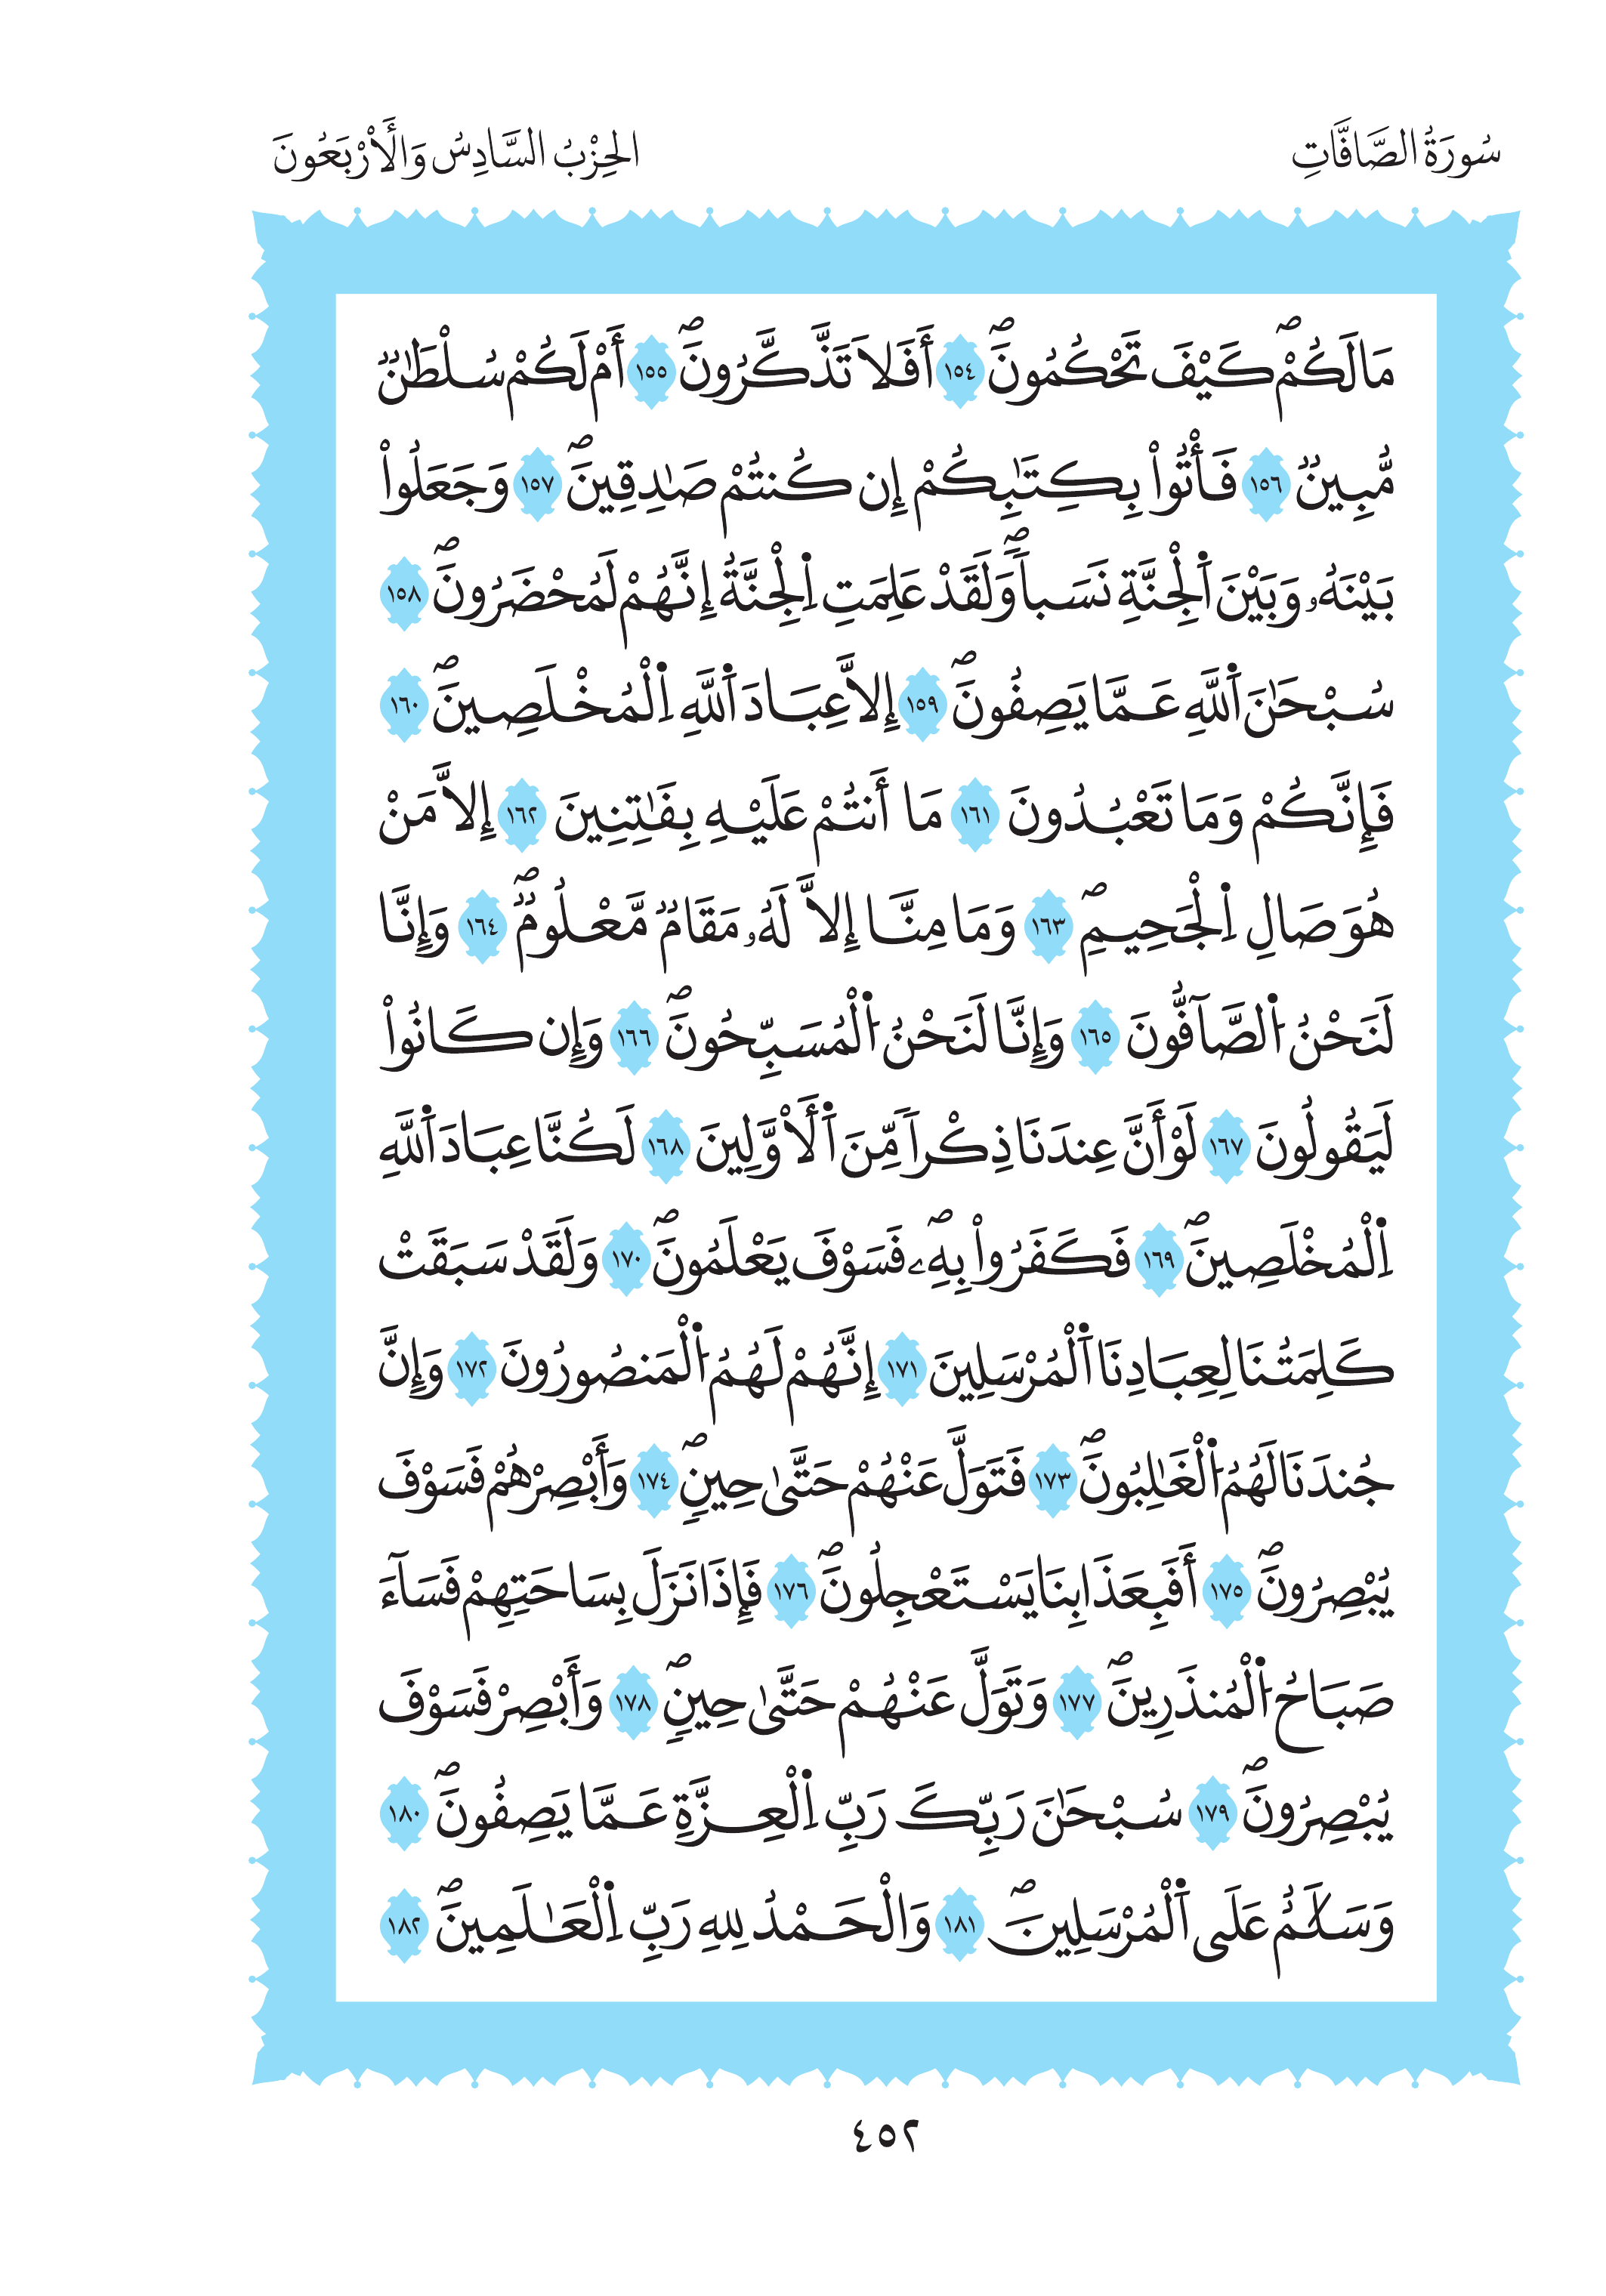 سُورَةُ الصَّافَّاتِ
الحِزْبُ السَّادِسُ وَالْأَرْبَعُونَ
مَا لَكُمْۖ كَيْفَ تَحْكُمُونَۖ ١٥٤ أَفَلَا تَذَّكَّرُونَۖ ١٥٥ أَمْ لَكُمْ سُلْطَٰنٞ
مُّبِينٞ ١٥٦ فَأْتُواْ بِكِتَٰبِكُمْ إِن كُنتُمْ صَٰدِقِينَۖ ١٥٧ وَجَعَلُواْ
بَيْنَهُۥ وَبَيْنَ اَ۬لْجِنَّةِ نَسَباٗۖ وَلَقَدْ عَلِمَتِ اِ۬لْجِنَّةُ إِنَّهُمْ لَمُحْضَرُونَۖ ١٥٨
سُبْحَٰنَ اَ۬للَّهِ عَمَّا يَصِفُونَۖ ١٥٩ إِلَّا عِبَادَ اَ۬للَّهِ اِ۬لْمُخْلَصِينَۖ ١٦٠
فَإِنَّكُمْ وَمَا تَعْبُدُونَ ١٦١ مَا أَنتُمْ عَلَيْهِ بِفَٰتِنِينَ ١٦٢ إِلَّا مَنْ
هُوَ صَالِ اِ۬لْجَحِيمِۖ ١٦٣ وَمَا مِنَّا إِلَّا لَهُۥ مَقَامٞ مَّعْلُومٞۖ ١٦٤ وَإِنَّا
لَنَحْنُ اُ۬لصَّآفُّونَ ١٦٥ وَإِنَّا لَنَحْنُ اُ۬لْمُسَبِّحُونَۖ ١٦٦ وَإِن كَانُواْ
لَيَقُولُونَ ١٦٧ لَوْ أَنَّ عِندَنَا ذِكْراٗ مِّنَ اَ۬لْأَوَّلِينَ ١٦٨ لَكُنَّا عِبَادَ اَ۬للَّهِ
اِ۬لْمُخْلَصِينَۖ ١٦٩ فَكَفَرُواْ بِهِۦۖ فَسَوْفَ يَعْلَمُونَۖ ١٧٠ وَلَقَدْ سَبَقَتْ
كَلِمَتُنَا لِعِبَادِنَا اَ۬لْمُرْسَلِينَ ١٧١ إِنَّهُمْ لَهُمُ اُ۬لْمَنصُورُونَ ١٧٢ وَإِنَّ
جُندَنَا لَهُمُ اُ۬لْغَٰلِبُونَۖ ١٧٣ فَتَوَلَّ عَنْهُمْ حَتَّىٰ حِينٖۖ ١٧٤ وَأَبْصِرْهُمْ فَسَوْفَ
يُبْصِرُونَۖ ١٧٥ أَفَبِعَذَابِنَا يَسْتَعْجِلُونَۖ ١٧٦ فَإِذَا نَزَلَ بِسَاحَتِهِمْ فَسَآءَ
صَبَاحُ اُ۬لْمُنذَرِينَۖ ١٧٧ وَتَوَلَّ عَنْهُمْ حَتَّىٰ حِينٖۖ ١٧٨ وَأَبْصِرْ فَسَوْفَ
يُبْصِرُونَۖ ١٧٩ سُبْحَٰنَ رَبِّكَ رَبِّ اِ۬لْعِزَّةِ عَمَّا يَصِفُونَۖ ١٨٠
وَسَلَٰمٌ عَلَى اَ۬لْمُرْسَلِينَۖ ١٨١ وَالْحَمْدُ لِلهِ رَبِّ اِ۬لْعَٰلَمِينَۖ ١٨٢
٤٥٢